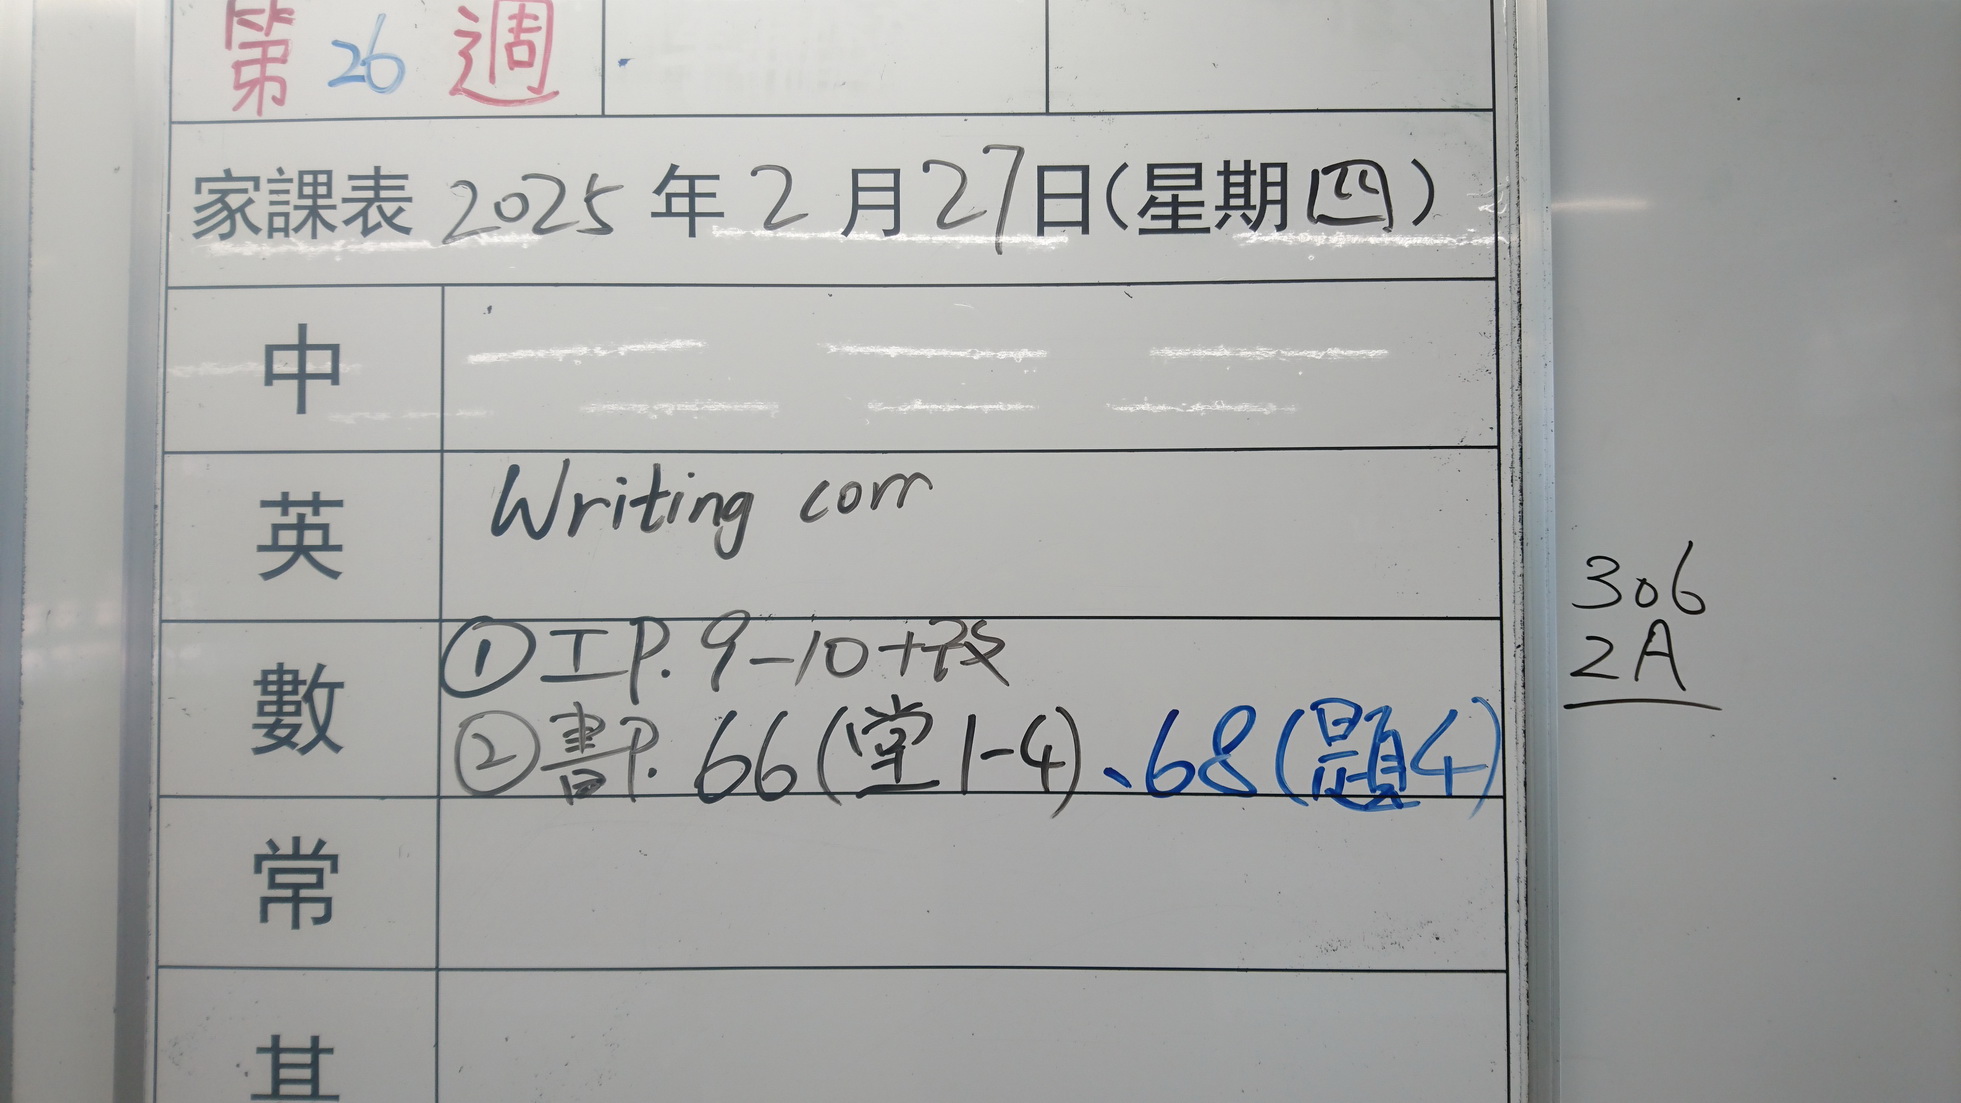 第26週
家課表 2025年2月27日(星期四)
中
英 Writing corr
數 ①工P.9-10+改
②書P.66(堂1-4)、68(題4)
常
306
2A